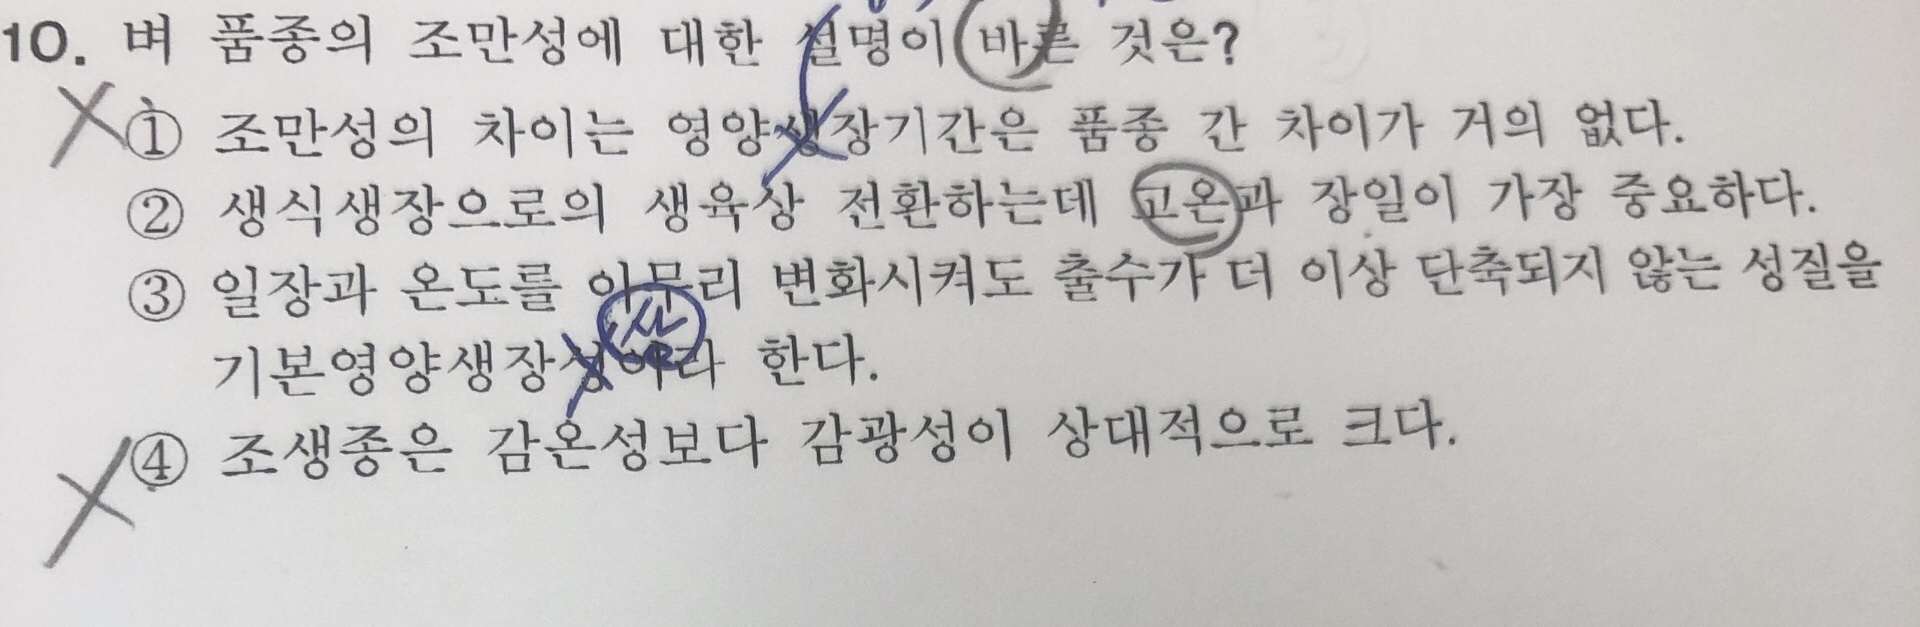 10. 벼 품종의 조만성에 대한 설명이 바른 것은?
① 조만성의 차이는 영양생장기간은 품종 간 차이가 거의 없다.
② 생식생장으로의 생육상 전환하는데 고온과 장일이 가장 중요하다.
③ 일장과 온도를 아무리 변화시켜도 출수가 더 이상 단축되지 않는 성질을
상
기본영양생장성이라 한다.
④ 조생종은 감온성보다 감광성이 상대적으로 크다.